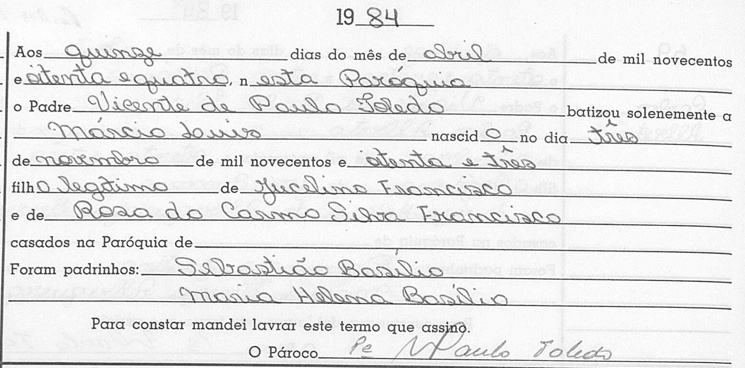 1984
Aos quinze dias do mês de abril de mil novecentos
e oitenta e quatro, n esta Paróquia
o Padre Vicente de Paulo Toledo batizou solenemente a
Márcio Luis nascido no dia três
de novembro de mil novecentos e oitenta e três
filho legítimo de Jucelino Francisco
e de Rosa do Carmo Silva Francisco
casados na Paróquia de
Foram padrinhos: Sebastião Basílio
Maria Helena Basílio
Para constar mandei lavrar este termo que assino.
O Pároco Pe VPaulo Toledo